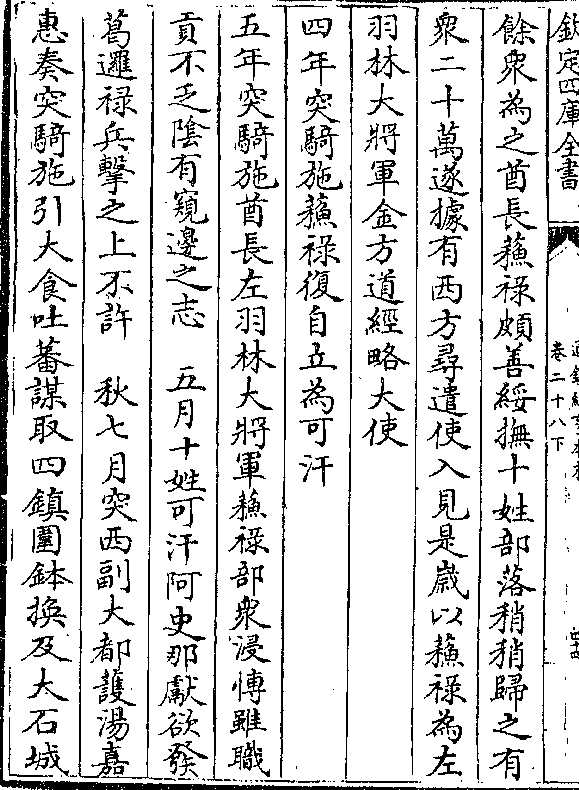 欽定四庫全書
卷二十八下
餘衆為之酋長蘓禄頗善綏撫十姓部落稍稍歸之有
衆二十萬遂據有西方尋遣使入見是歲以蘓禄為左
羽林大將軍金方道經略大使
四年突騎施蘓禄復自立為可汗
五年突騎施酋長左羽林大將軍蘓禄部衆浸慱雖職
貢不乏陰有窺邊之志　五月十姓可汗阿史那獻欲發
葛邏禄兵擊之上不許　秋七月突西副大都䕶湯嘉
惠奏突騎施引大食吐蕃謀取四鎮圍鉢換及大石城